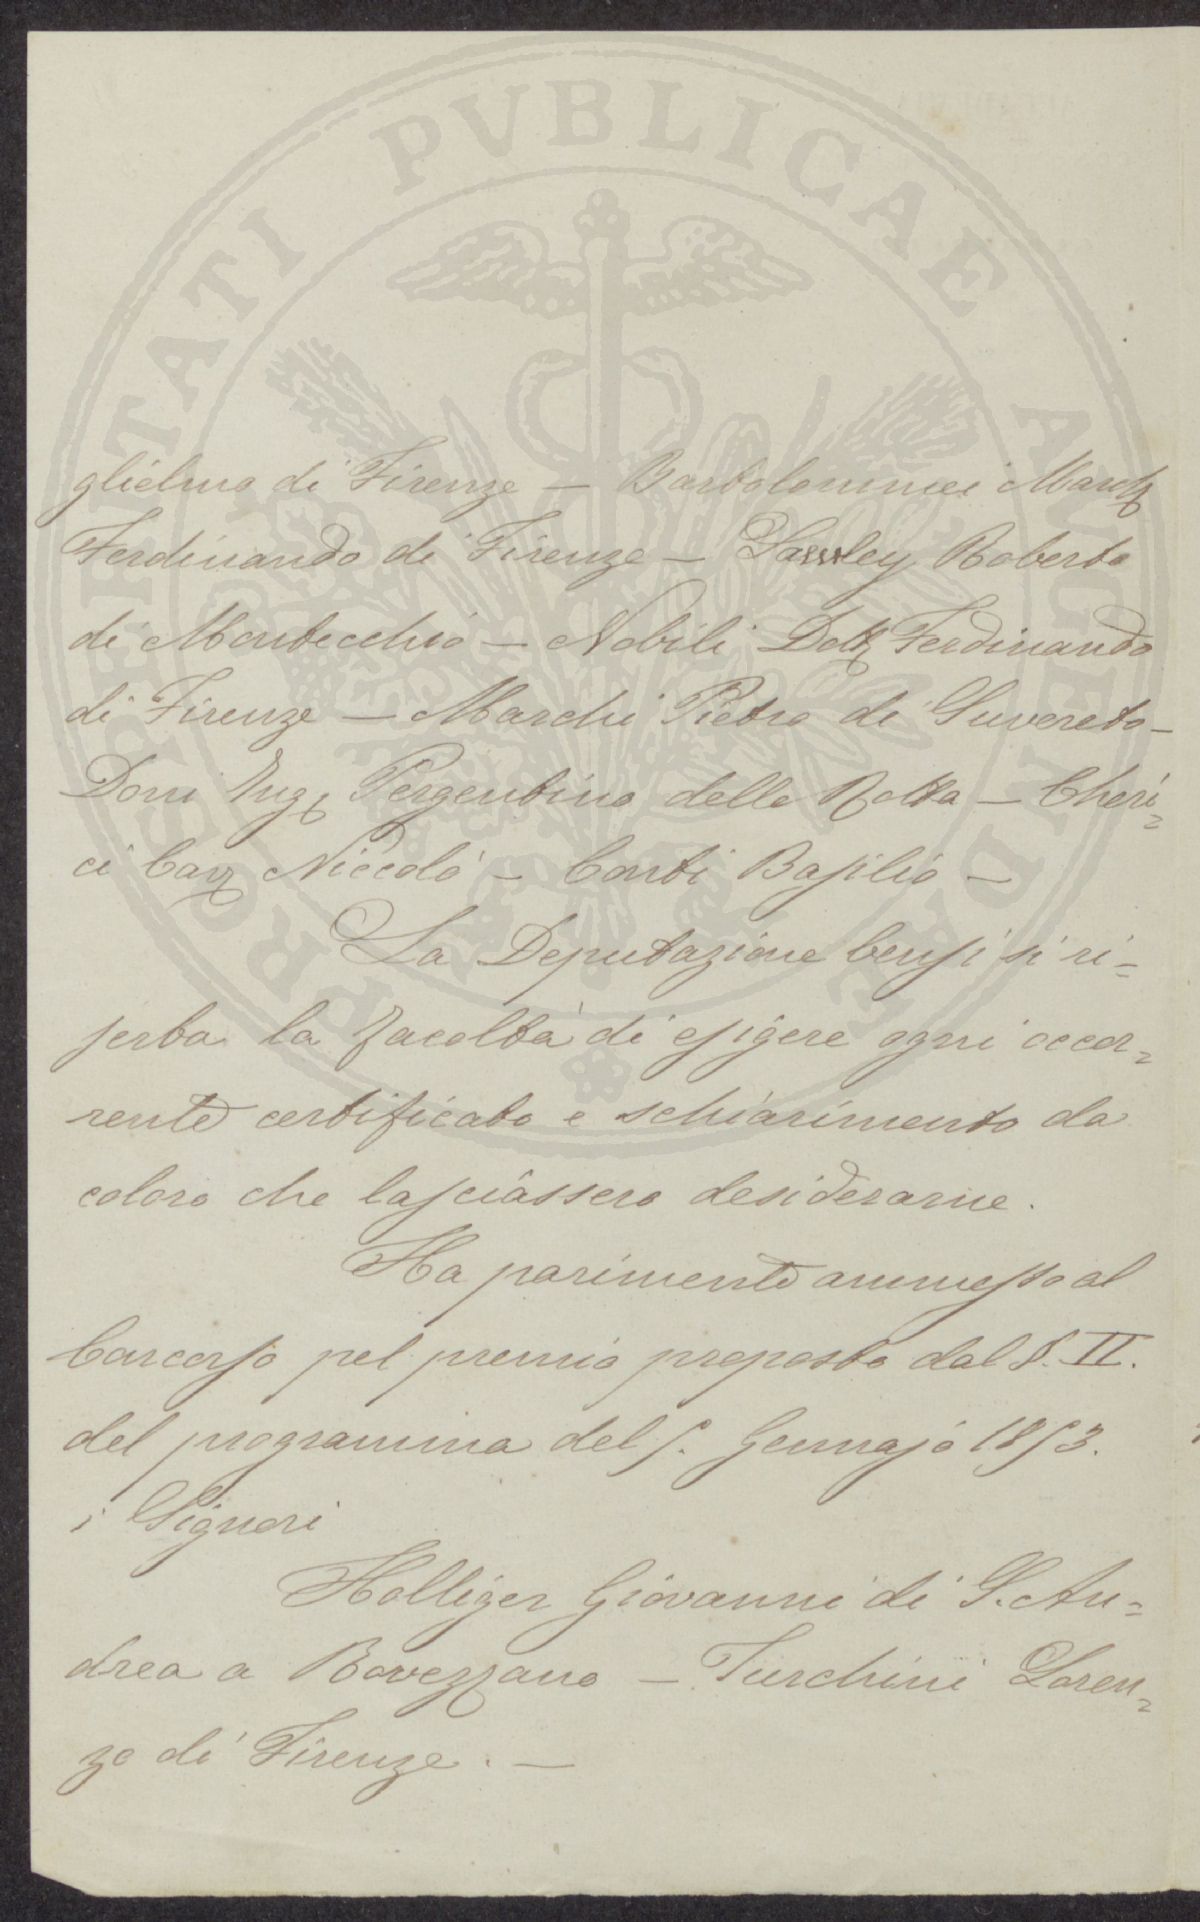 glielmo di Firenze — Bartolommei March
Ferdinando di Firenze — Lawley Roberto
di Montecchio — Nobili Dott Ferdinando
di Firenze — Marchi Pietro di Suvereto —
Doni Ing. Pergentino della Rotta — Cheri=
ci Cav Niccolò — Conti Basilio —
La Deputazione bensi si ri=
serba la facoltà di esigere ogni occor=
rente certificato e schiarimento da
coloro che lasciassero desiderarne.
Ha parimente ammesso al
Concorso pel premio proposto dal §. II.
del programma del 5. Gennajo 1853.
i Signori
Holliger Giovanni di S. An=
drea a Rovezzano — Turchini Loren=
zo di Firenze. —
PROSPERITATI PVBLICAE AVGENDAE